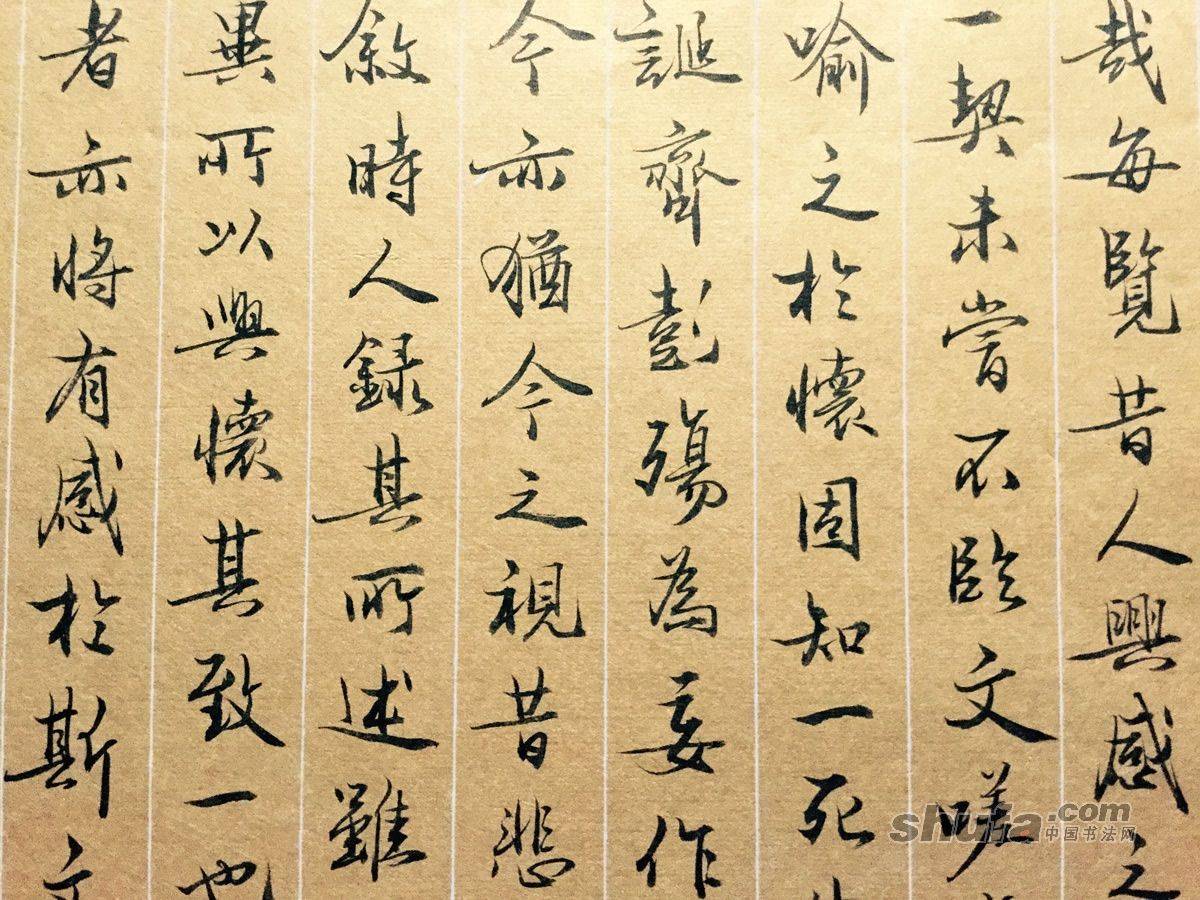 哉每覽昔人興感之
一契未嘗不臨文嗟
喻之於懷固知一死
誕齊彭殤為妄作
今亦猶今之視昔悲
敘時人録其所述雖
異所以興懷其致一也
者亦將有感於斯文
shufa.com
中国书法网